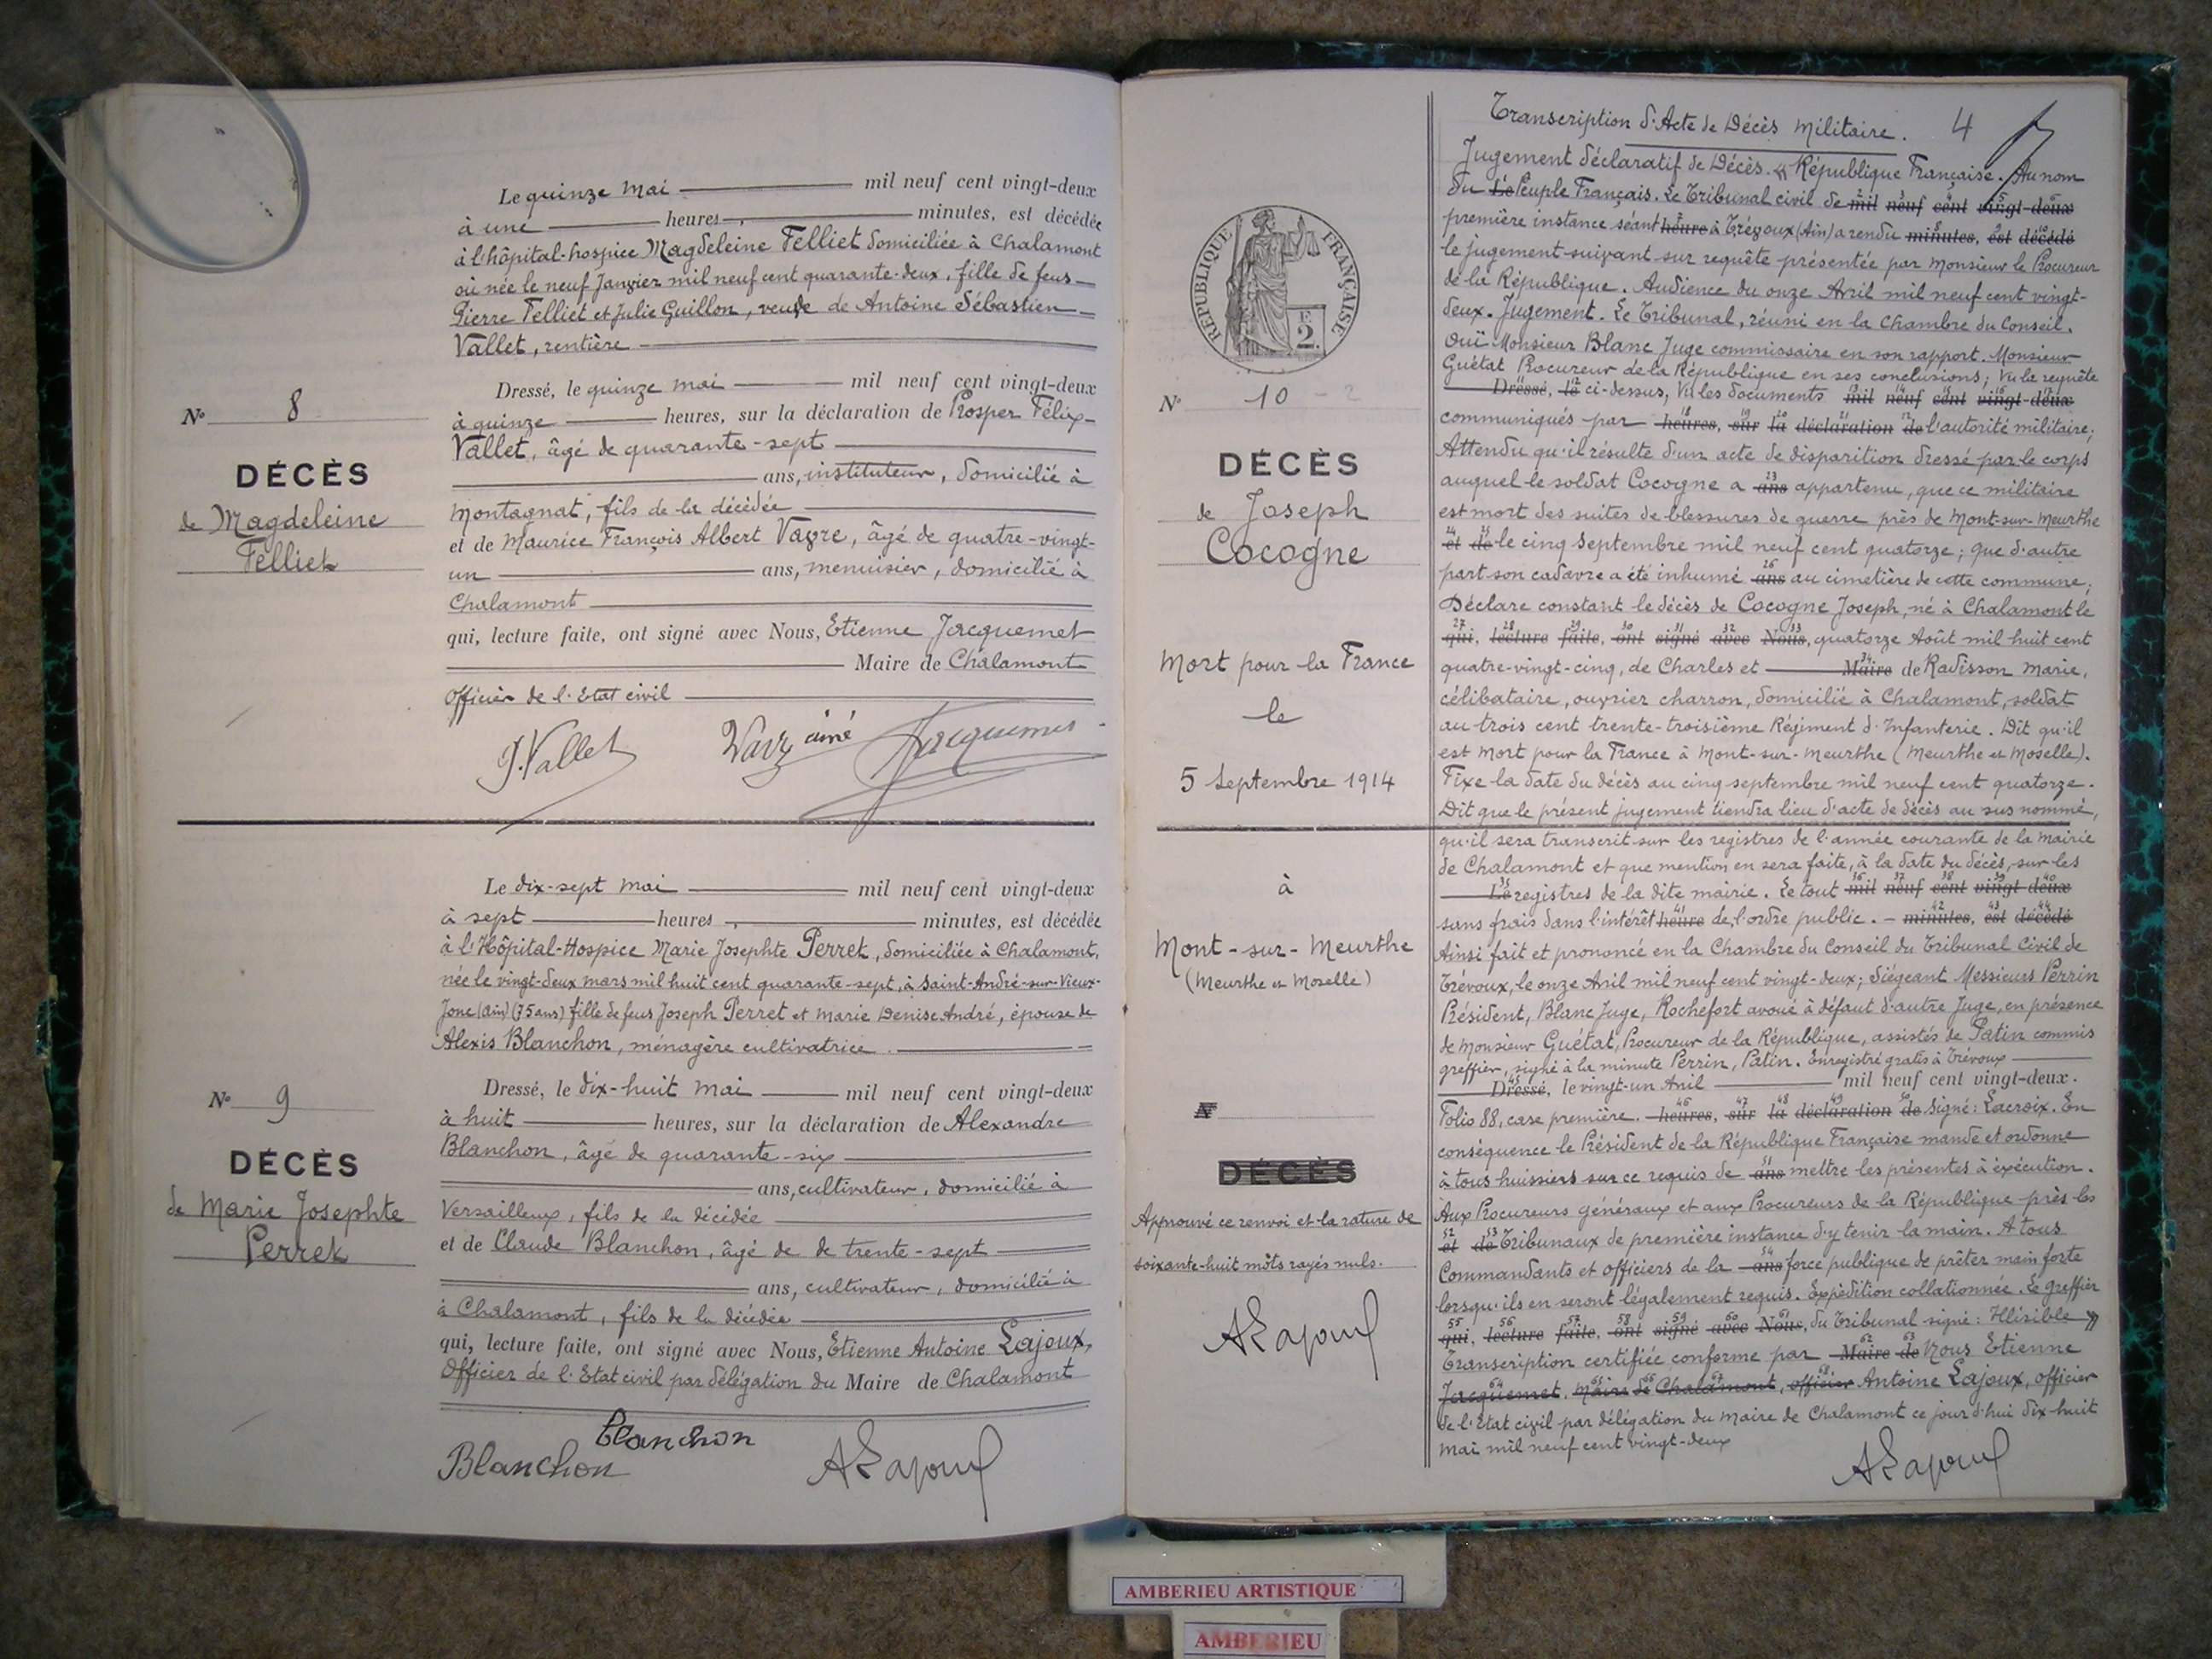 Le quinze mai mil neuf cent vingt-deux
à une heures, minutes, est décédée
à l'hôpital-hospice Magdeleine Felliet domiciliée à Chalamont
où née le neuf Janvier mil neuf cent quarante-deux, fille de feus
Pierre Felliet et Julie Guillon, veuve de Antoine Sébastien
Vallet, rentière
Nº 8
DÉCÈS
de Magdeleine
Felliet
Dressé, le quinze mai mil neuf cent vingt-deux
à quinze heures, sur la déclaration de Prosper Félix
Vallet, âgé de quarante-sept
ans, instituteur, domicilié à
Montagnat, fils de la décédée
et de Maurice François Albert Vayre, âgé de quatre-vingt-
un ans, menuisier, domicilié à
Chalamont
qui, lecture faite, ont signé avec Nous, Etienne Jacquemet
Maire de Chalamont
Officier de l'Etat civil
P. Vallet ainé Jacquemet
Le dix-sept mai mil neuf cent vingt-deux
à sept heures, minutes, est décédée
à l'Hôpital-Hospice Marie Josephte Perret, domiciliée à Chalamont,
née le vingt-deux mars mil huit cent quarante-sept, à Saint-André-sur-Vieux-
Jonc (Ain) (75 ans) fille de feus Joseph Perret et Marie Denise André, épouse de
Alexis Blanchon, ménagère cultivatrice.
Nº 9
DÉCÈS
de Marie Josephte
Perret
Dressé, le dix-huit mai mil neuf cent vingt-deux
à huit heures, sur la déclaration de Alexandre
Blanchon, âgé de quarante-six
ans, cultivateur, domicilié à
Versailleux, fils de la décédée
et de Claude Blanchon, âgé de de trente-sept
ans, cultivateur, domicilié à
à Chalamont, fils de la décédée
qui, lecture faite, ont signé avec Nous, Etienne Antoine Lajoux,
Officier de l'Etat civil par délégation du Maire de Chalamont
Blanchon
Blanchon ALajoux
REPUBLIQUE FRANÇAISE
F.
2.
Nº 10
DÉCÈS
de Joseph
Cocogne
Mort pour la France
le
5 Septembre 1914
à
Mont-sur-Meurthe
(Meurthe et Moselle)
Nº
DÉCÈS
Approuvé ce renvoi et la rature de
soixante-huit mots rayés nuls.
ALajoux
Transcription d'Acte de Décès Militaire. 4
Jugement déclaratif de Décès. « République Française. Au nom
du Le Peuple Français. Le Tribunal civil de mil neuf cent vingt-deux
première instance séant heure à Trévoux (Ain) a rendu minutes, est décédé
le jugement suivant sur requête présentée par Monsieur le Procureur
de la République. Audience du onze Avril mil neuf cent vingt-
deux. Jugement. Le Tribunal, réuni en la Chambre du Conseil.
Ouï Monsieur Blanc Juge commissaire en son rapport. Monsieur
Guétat Procureur de la République en ses conclusions; Vu la requête
Dressé, le ci-dessus, Vu les documents mil neuf cent vingt-deux
communiqués par heures, sur la déclaration de l'autorité militaire;
Attendu qu'il résulte d'un acte de disparition dressé par le corps
auquel le soldat Cocogne a ans appartenu, que ce militaire
est mort des suites de blessures de guerre près de Mont-sur-Meurthe
et de le cinq Septembre mil neuf cent quatorze; que d'autre
part son cadavre a été inhumé ans au cimetière de cette commune;
Déclare constant le décès de Cocogne Joseph, né à Chalamont le
qui, lecture faite, ont signé avec Nous, quatorze Août mil huit cent
quatre-vingt-cinq, de Charles et Maire de Radisson Marie,
célibataire, ouvrier charron, domicilié à Chalamont, soldat
au trois cent trente-troisième Régiment d'Infanterie. Dit qu'il
est mort pour la France à Mont-sur-Meurthe (Meurthe et Moselle).
Fixe la date du décès au cinq septembre mil neuf cent quatorze.
Dit que le présent jugement tiendra lieu d'acte de décès au sus nommé,
qu'il sera transcrit sur les registres de l'année courante de la mairie
de Chalamont et que mention en sera faite, à la date du décès, sur les
Le registres de la dite mairie. Le tout mil neuf cent vingt-deux
sans frais dans l'intérêt heure de l'ordre public. - minutes, est décédé
Ainsi fait et prononcé en la Chambre du Conseil du Tribunal Civil de
Trévoux, le onze Avril mil neuf cent vingt-deux; Siégeant Messieurs Perrin
Président, Blanc Juge, Rochefort avoué à défaut d'autre Juge, en présence
de Monsieur Guétat, Procureur de la République, assistés de Patin commis
greffier, signé à la minute Perrin, Patin. Enregistré gratis à Trévoux
Dressé, le vingt-un Avril mil neuf cent vingt-deux.
Folio 88, case première. heures, sur la déclaration de Signé: Lacroix. En
conséquence le Président de la République Française mande et ordonne
à tous huissiers sur ce requis de ans mettre les présentes à exécution.
Aux Procureurs généraux et aux Procureurs de la République près les
et de Tribunaux de première instance d'y tenir la main. A tous
Commandants et officiers de la ans force publique de prêter main forte
lorsqu'ils en seront légalement requis. Expédition collationnée. Le greffier
qui, lecture faite, ont signé avec Nous, du Tribunal signé: Illisible »
Transcription certifiée conforme par Maire de Nous Etienne
Jacquemet, Maire de Chalamont, officier Antoine Lajoux, officier
de l'Etat civil par délégation du Maire de Chalamont ce jourd'hui dix-huit
mai mil neuf cent vingt-deux
ALajoux
AMBERIEU ARTISTIQUE
AMBERIEU